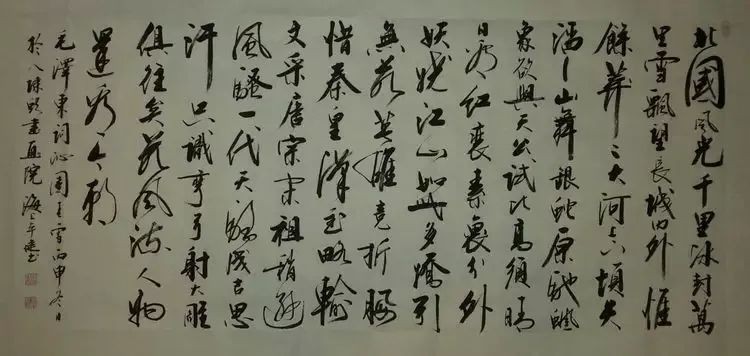 北國風光千里冰封萬
里雪飄望長城內外惟
餘莽〻大河上下頓失
滔〻山舞銀蛇原馳蠟
象欲與天公試比高須晴
日看紅裹素裹分外
妖嬈江山如此多嬌引
無數英雄競折腰
惜秦皇漢武略輸
文采唐宗宋祖稍遜
風騷一代天驕成吉思
汗只識彎弓射大雕
俱往矣數風流人物
還看今朝
毛澤東詞沁園春雪丙申冬日
於八書畫院海平書